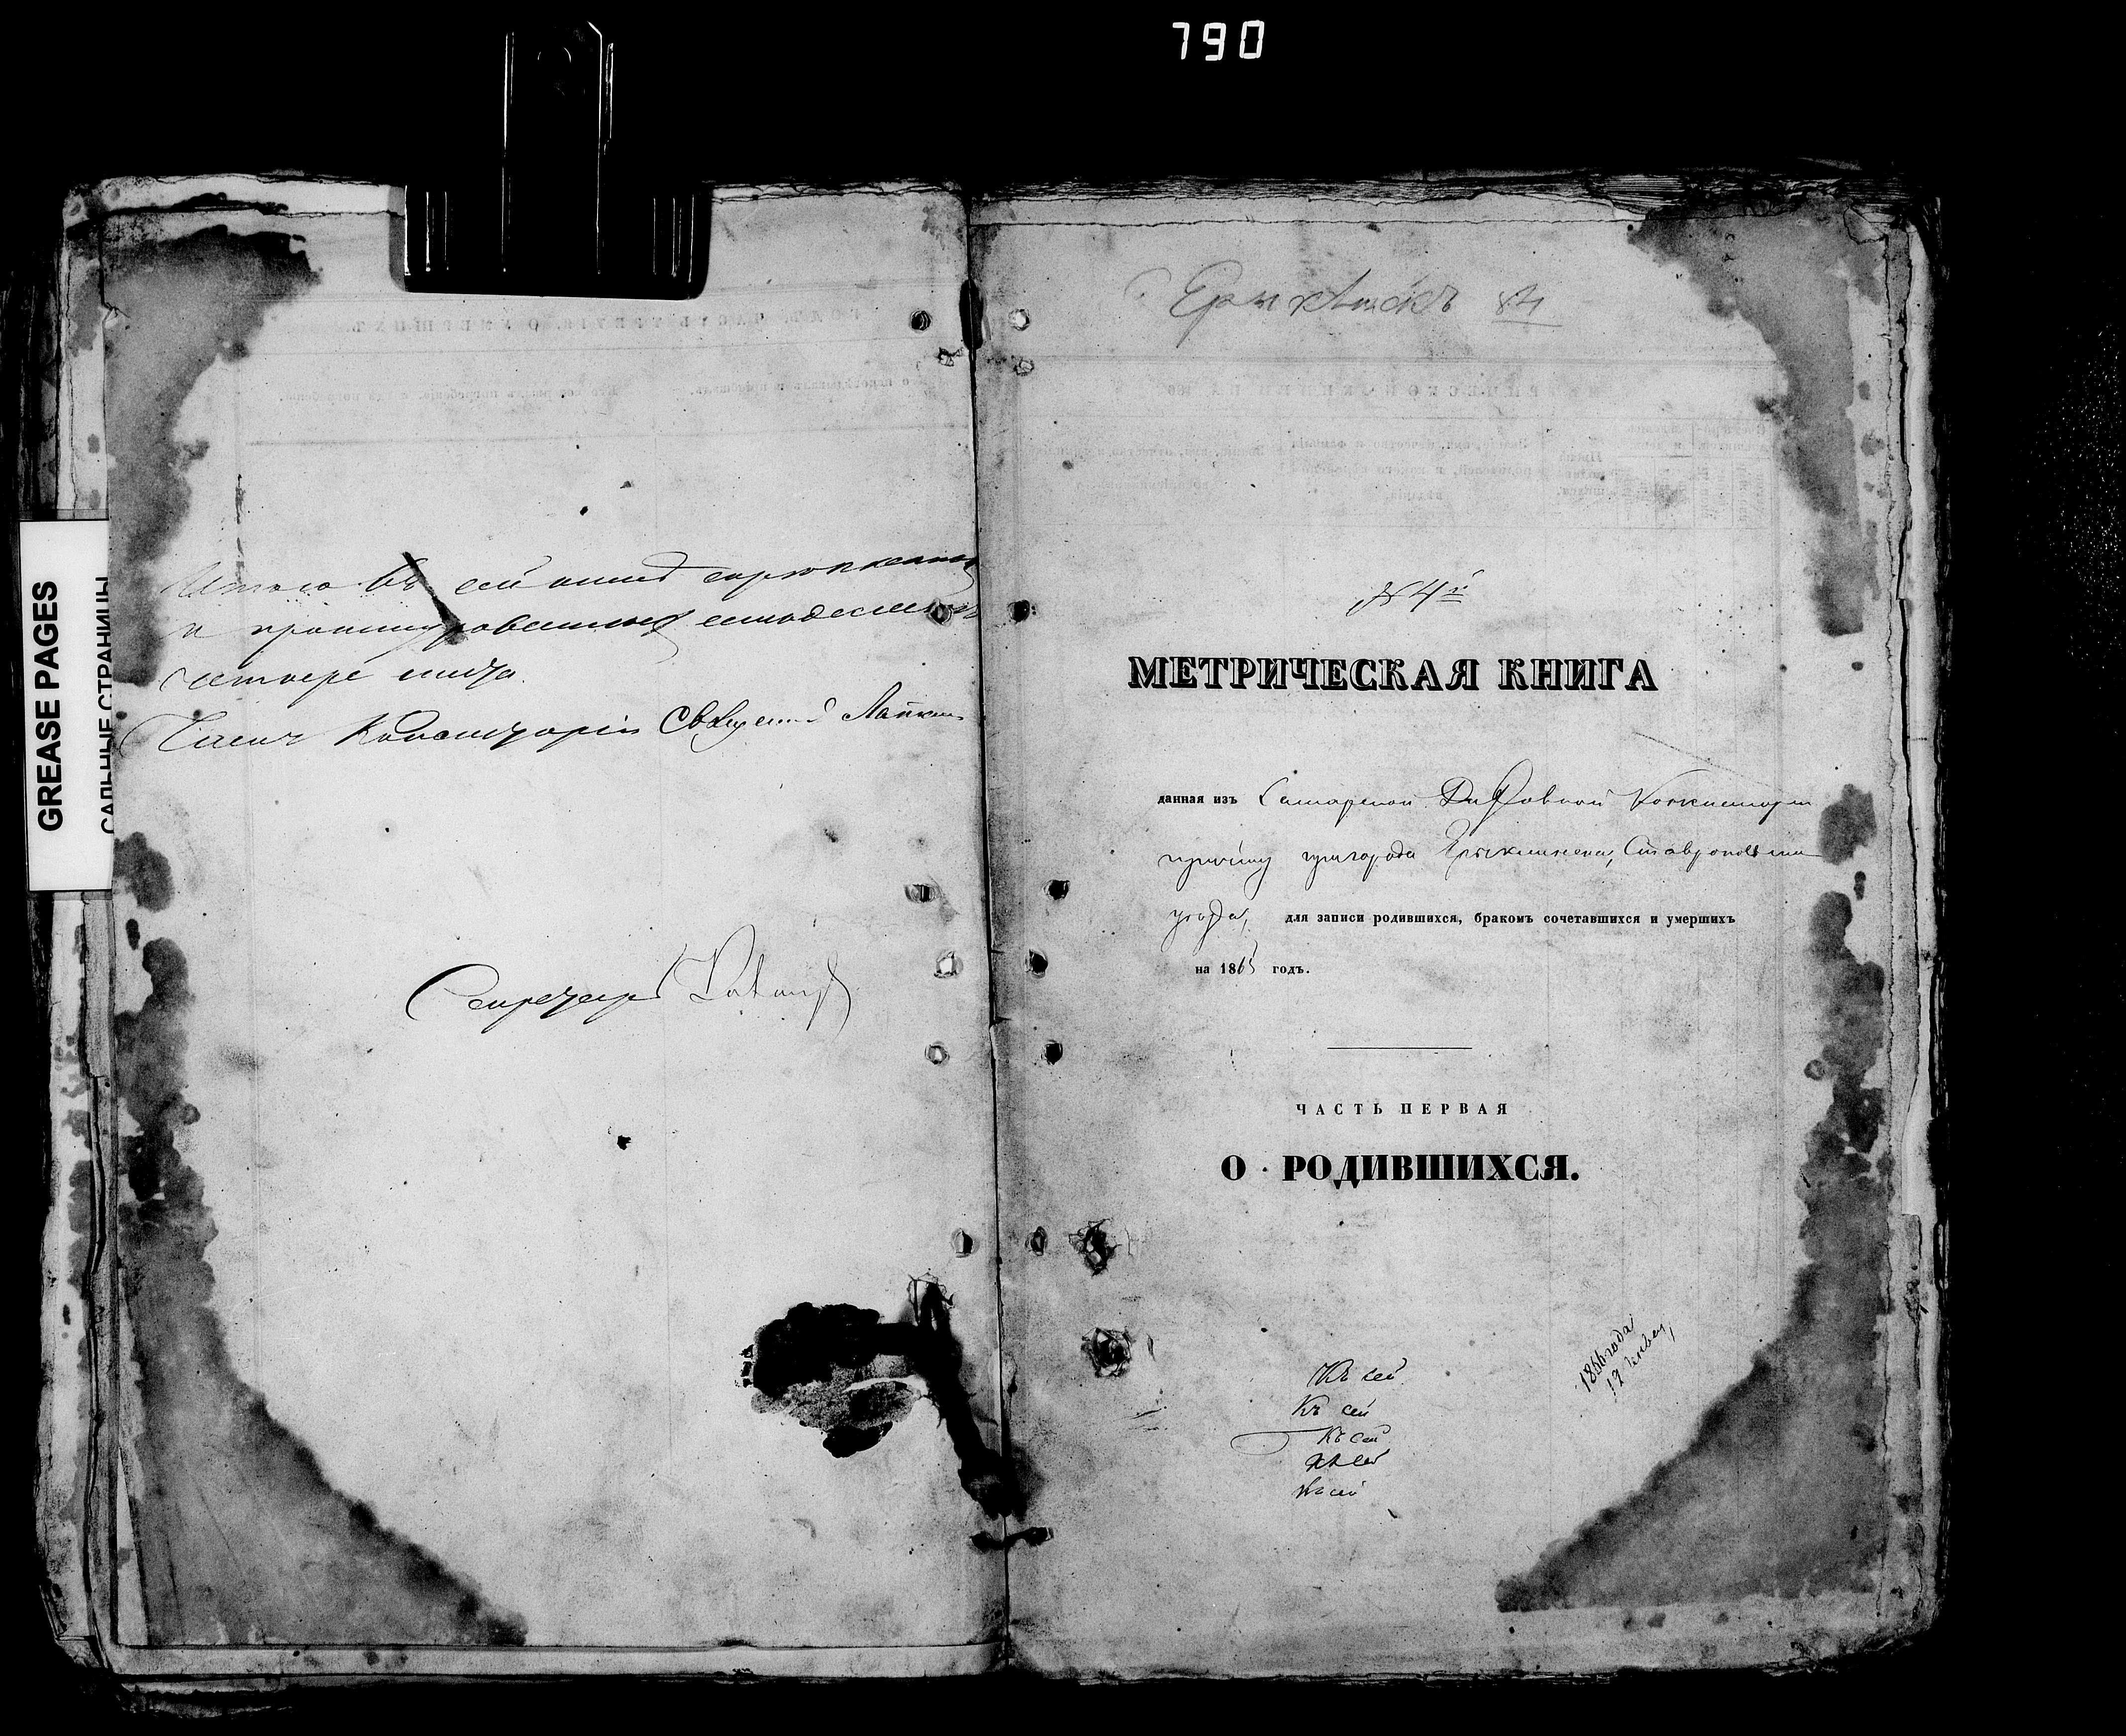 790
GREASE PAGES
САЛЬНЫЕ СТРАНИЦЫ
Итого въ сей книге
и
четыре листа.
Членъ Консисторіи Священникъ
Секретарь
84
№ 4й
МЕТРИЧЕСКАЯ КНИГА
данная изъ Самарской Духовной Консисторіи
причту пригорода Ерыклинска, Ставропольскаго
уѣзда, для записи родившихся, бракомъ сочетавшихся и умершихъ
на 1865 годъ.
ЧАСТЬ ПЕРВАЯ
О РОДИВШИХСЯ.
1866 года
Къ сей
Къ сей
Къ сей
Къ сей
Къ сей